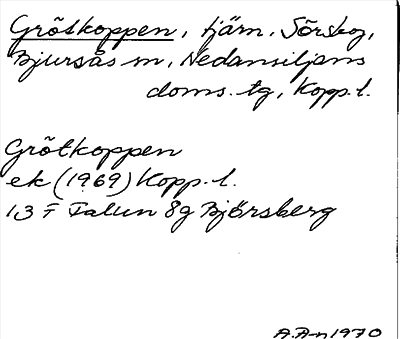 Grötkoppen, tjärn. Sörskog,
Bjursås sn, Nedansiljans
doms. tg, Kopp. l.
Grötkoppen
ek (1969) Kopp. l.
13 F Falun 8g Björsberg
A.A-n 1970